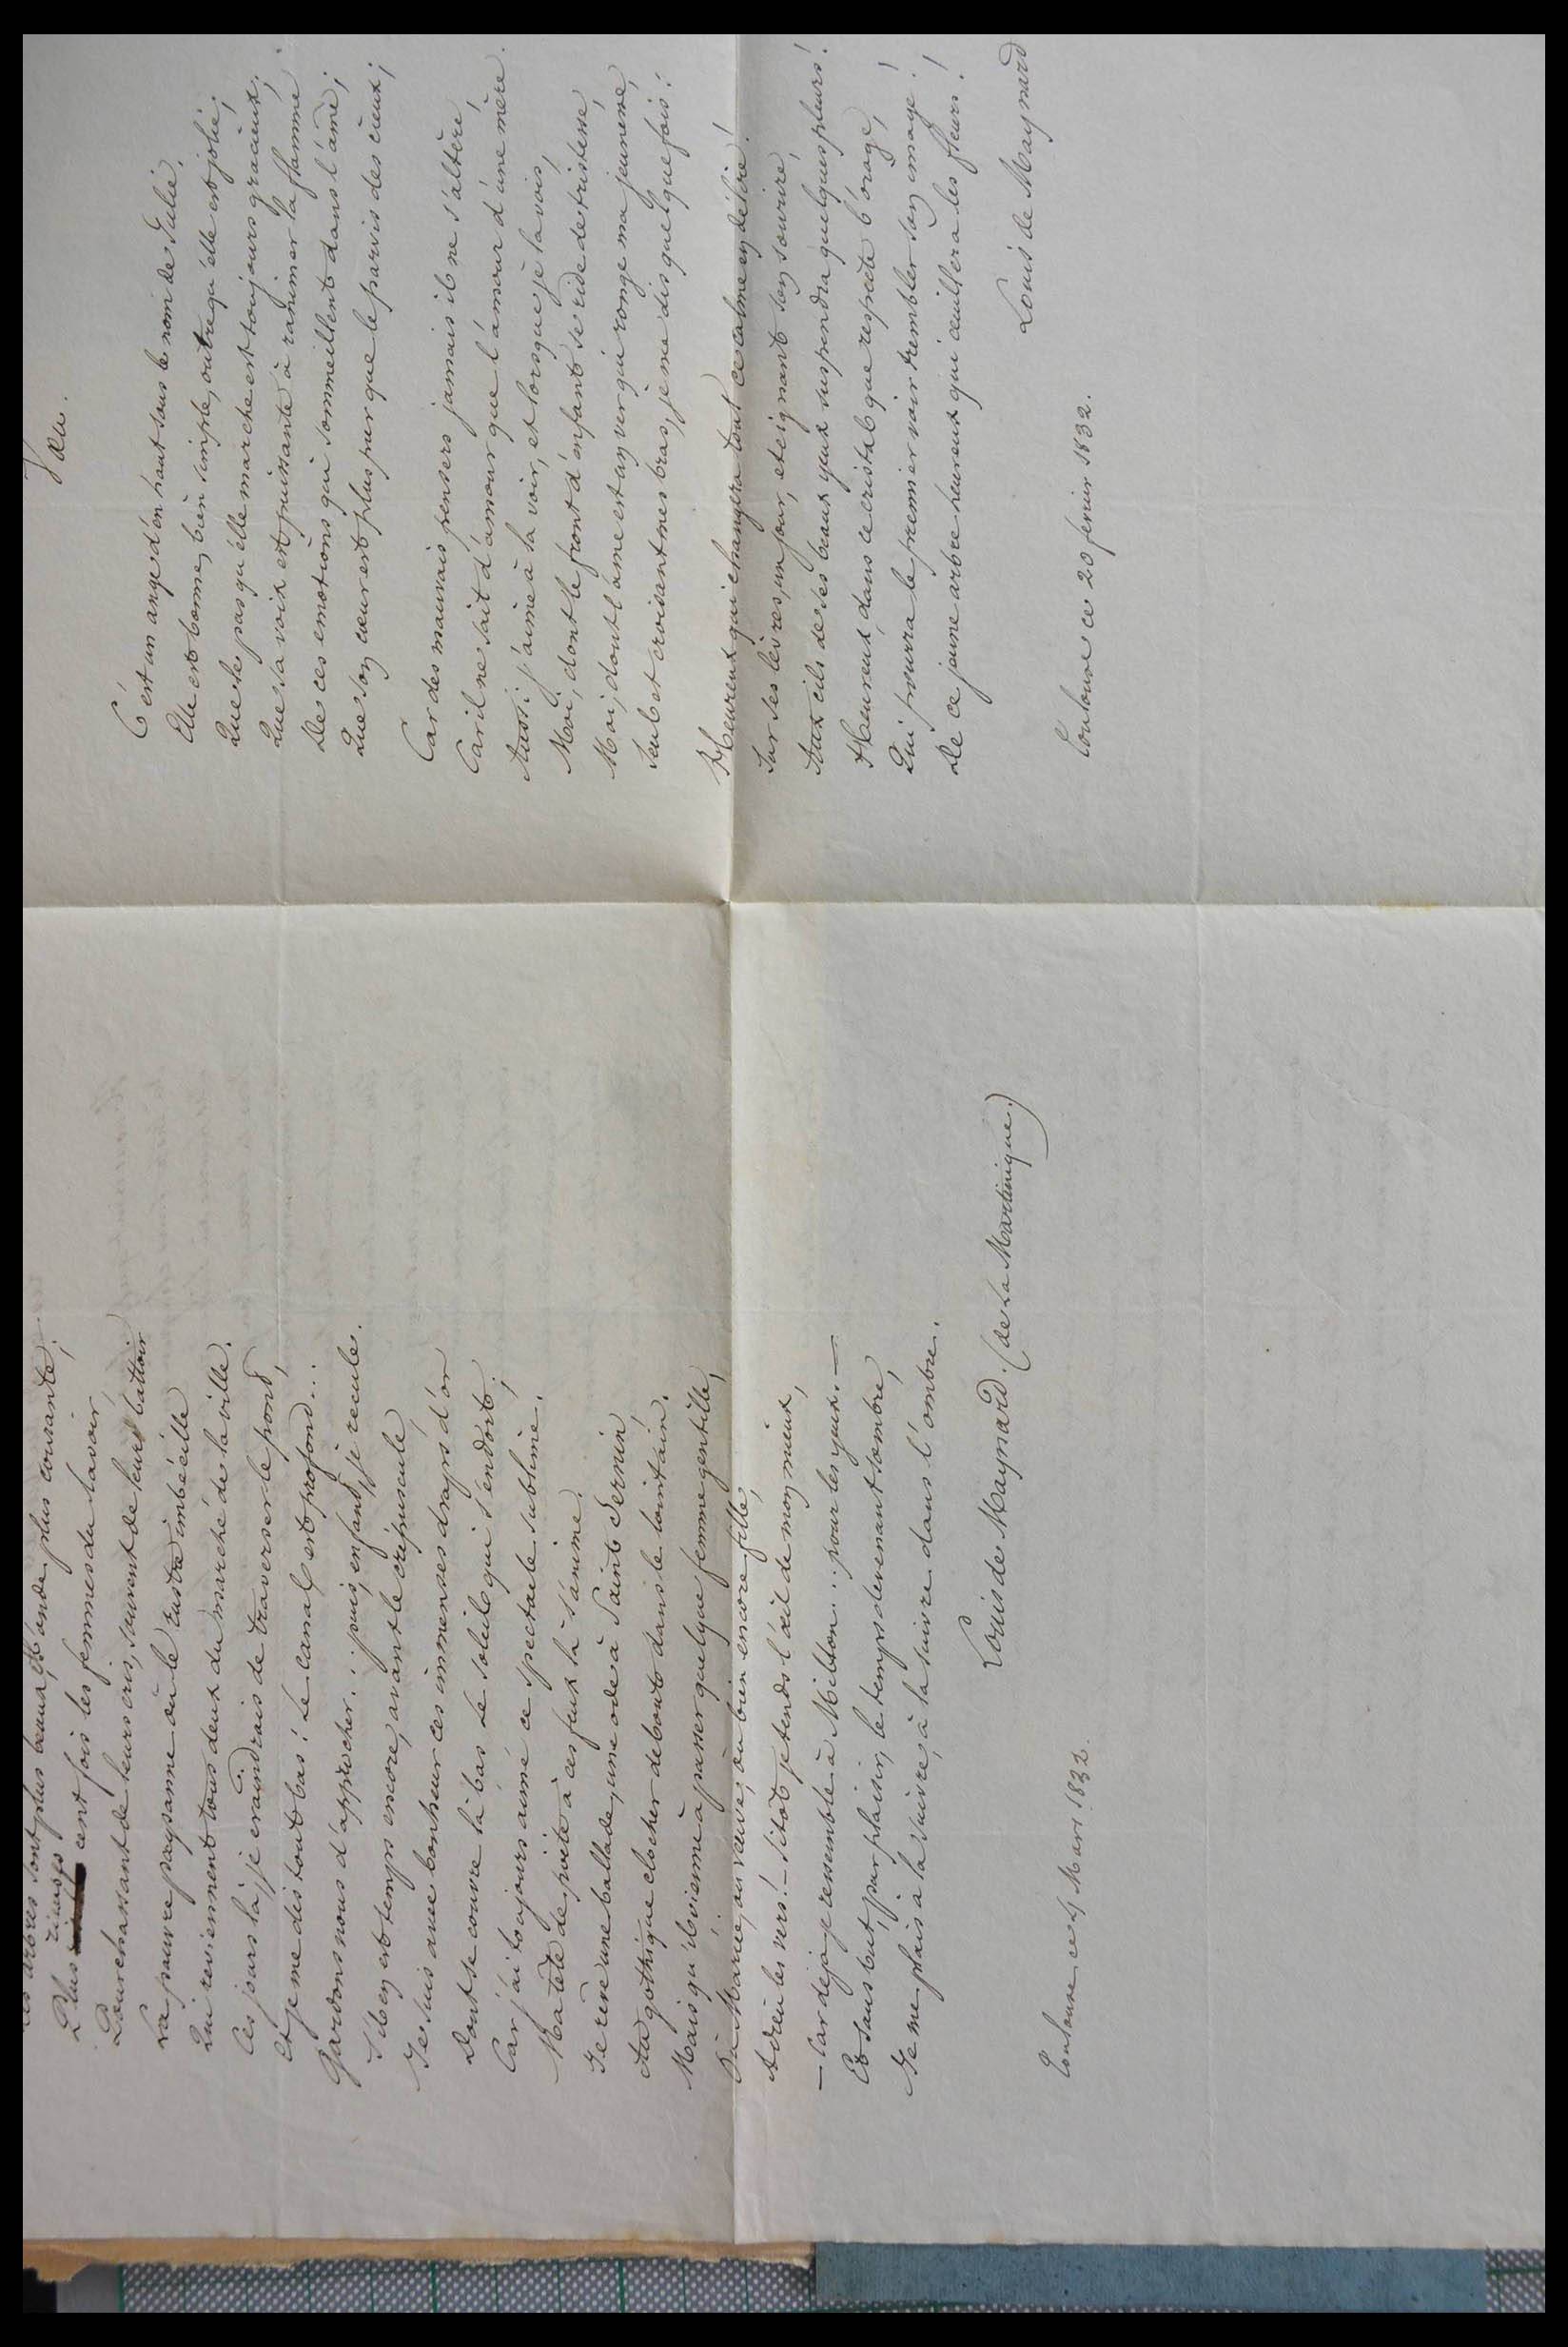 arbres sont plus beaux, et l'onde plus courante;
rieuses
Plus cent fois les femmes du lavoir,
Pourchassant de leurs cris, souvent de leur battoir
La pauvre paysanne où le rustre imbécille
Qui reviennent tous deux du marché de la ville.
Ces jours là, je craindrais de traverser le pont,
Et je me dis tout bas: Le canal est profond...
Gardons nous d'approcher... puis, enfant, je recule.
S'il en est temps encore, avant le crépuscule
Je suis avec bonheur ces immenses draps d'or
Dont se couvre là bas le soleil qui s'endort;
Car j'ai toujours aimé ce spectacle sublime.
Ma tête de poète à ces feux là s'anime.
Je rêve une ballade, une ode à Saint Sernin
Au gothique clocher debout dans le lointain.
Mais qu'il vienne à passer quelque femme gentille,
Où Mariée, ou veuve, ou bien encore fille,
Adieu les vers! — Sitôt j'étends l'œil de mon mieux,
— Car déjà je ressemble à Milton... pour les yeux. —
Et sans but, par plaisir, le temps devenant sombre,
Je me plais à la suivre, à la suivre dans l'ombre.
Louis de Maynard. (de La Martinique)
Toulouse ce 4 Mars 1832.
C'est un ange d'en haut sous le nom de Julie.
Elle est bonne, bien simple, outre qu'elle est jolie;
Que le pas qu'elle marche est toujours gracieux;
Que sa voix est puissante à ranimer la flamme
De ces émotions qui sommeillent dans l'âme;
Que son cœur est plus pur que le parvis des cieux;
Car des mauvais pensers jamais il ne s'altère,
Car il ne sait d'amour que l'amour d'une mère.
Aussi j'aime à la voir, et lorsque je la vois,
Moi, dont le front d'enfant se ride de tristesse,
Moi, dont l'âme est un ver qui ronge ma jeunesse,
Seul et croisant mes bras, je me dis quelquefois:
Heureux qui changera tout ce calme en délire!
Sur ses lèvres, un jour, éteignant son sourire,
Aux cils de ses beaux yeux suspendra quelques pleurs!
Heureux, dans ce cristal que respecte l'orage,
Qui pourra le premier voir trembler son image!
De ce jeune arbre heureux qui cueillera les fleurs!
Louis de Maynard
Toulouse ce 20 février 1832.